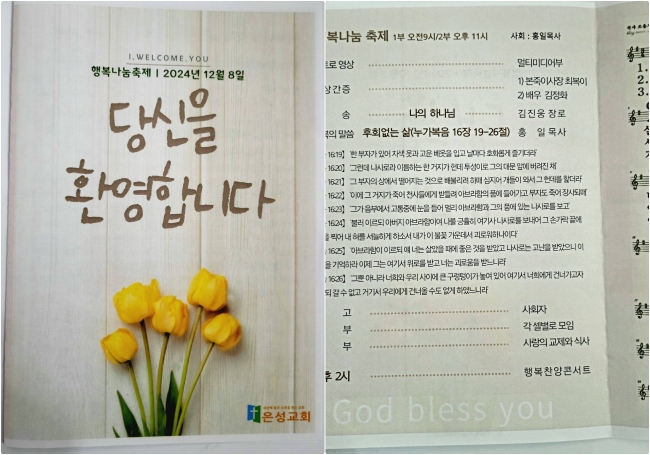 I.WELCOME.YOU
행복나눔축제 I 2024년 12월 8일
당신을
환영합니다
은성교회
복나눔 축제 1부 오전9시/2부 오후 11시 사회 : 홍일목사
영상 멀티미디어부
간증 1) 본죽이사장 최복이
2) 배우 김정화
송 나의 하나님 김진웅 장로
말씀 후회없는 삶(누가복음 16장 19-26절) 홍 일 목사
16:19】 '한 부자가 있어 자색 옷과 고운 베옷을 입고 날마다 호화롭게 즐기더라'
16:20】 '그런데 나사로라 이름하는 한 거지가 헌데 투성이로 그의 대문 앞에 버려진 채'
16:21】 '그 부자의 상에서 떨어지는 것으로 배불리려 하매 심지어 개들이 와서 그 헌데를 핥더라'
16:22】 '이에 그 거지가 죽어 천사들에게 받들려 아브라함의 품에 들어가고 부자도 죽어 장사되매'
16:23】 '그가 음부에서 고통중에 눈을 들어 멀리 아브라함과 그의 품에 있는 나사로를 보고'
16:24】 '불러 이르되 아버지 아브라함이여 나를 긍휼히 여기사 나사로를 보내어 그 손가락 끝에
찍어 내 혀를 서늘하게 하소서 내가 이 불꽃 가운데서 괴로워하나이다'
16:25】 '아브라함이 이르되 얘 너는 살았을 때에 좋은 것을 받았고 나사로는 고난을 받았으니 이
을 기억하라 이제 그는 여기서 위로를 받고 너는 괴로움을 받느니라'
16:26】 '그뿐 아니라 너희와 우리 사이에 큰 구렁텅이가 놓여 있어 여기서 너희에게 건너가고자
되 갈 수 없고 거기서 우리에게 건너올 수도 없게 하였느니라'
고 사회자
부 각 셀별로 모임
부 사랑의 교제와 식사
후 2시 행복찬양콘서트
God bless you
1.
2.
3.